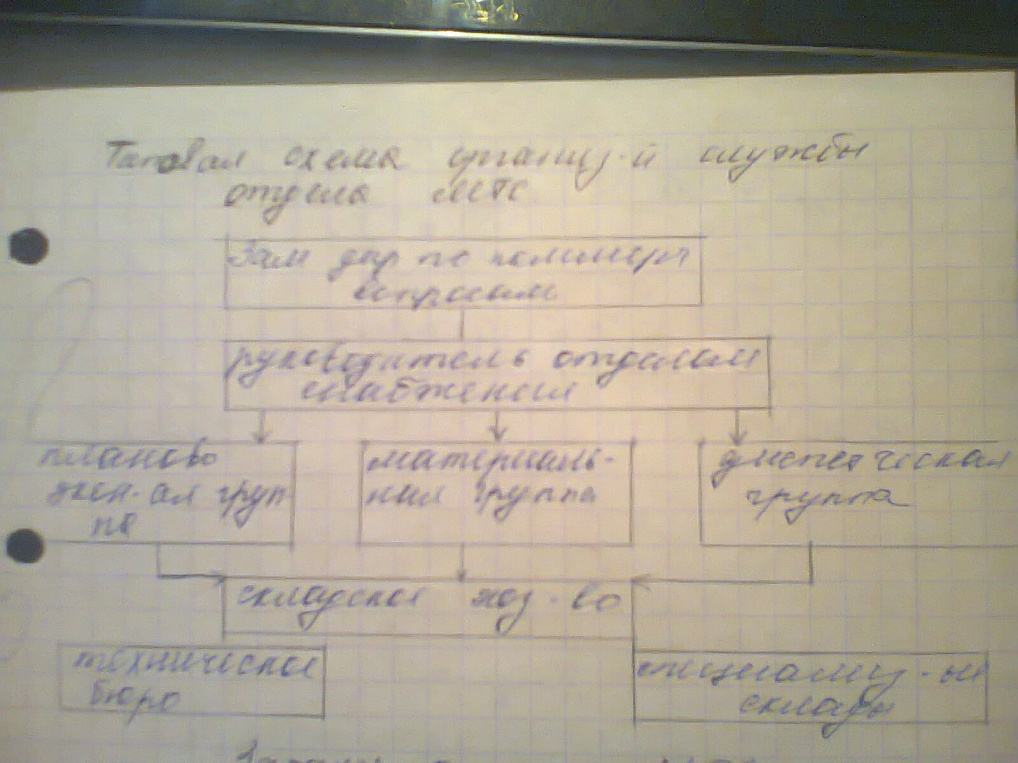 Типовая схема организ-и службы
отдела МТС
Зам дир по коммерч
вопросам
руководитель отделом
снабжения
планово
экон-ая груп
па
материаль-
ная группа
диспетческая
группа
складское хоз-во
техническое
бюро
специализ-ые
склады